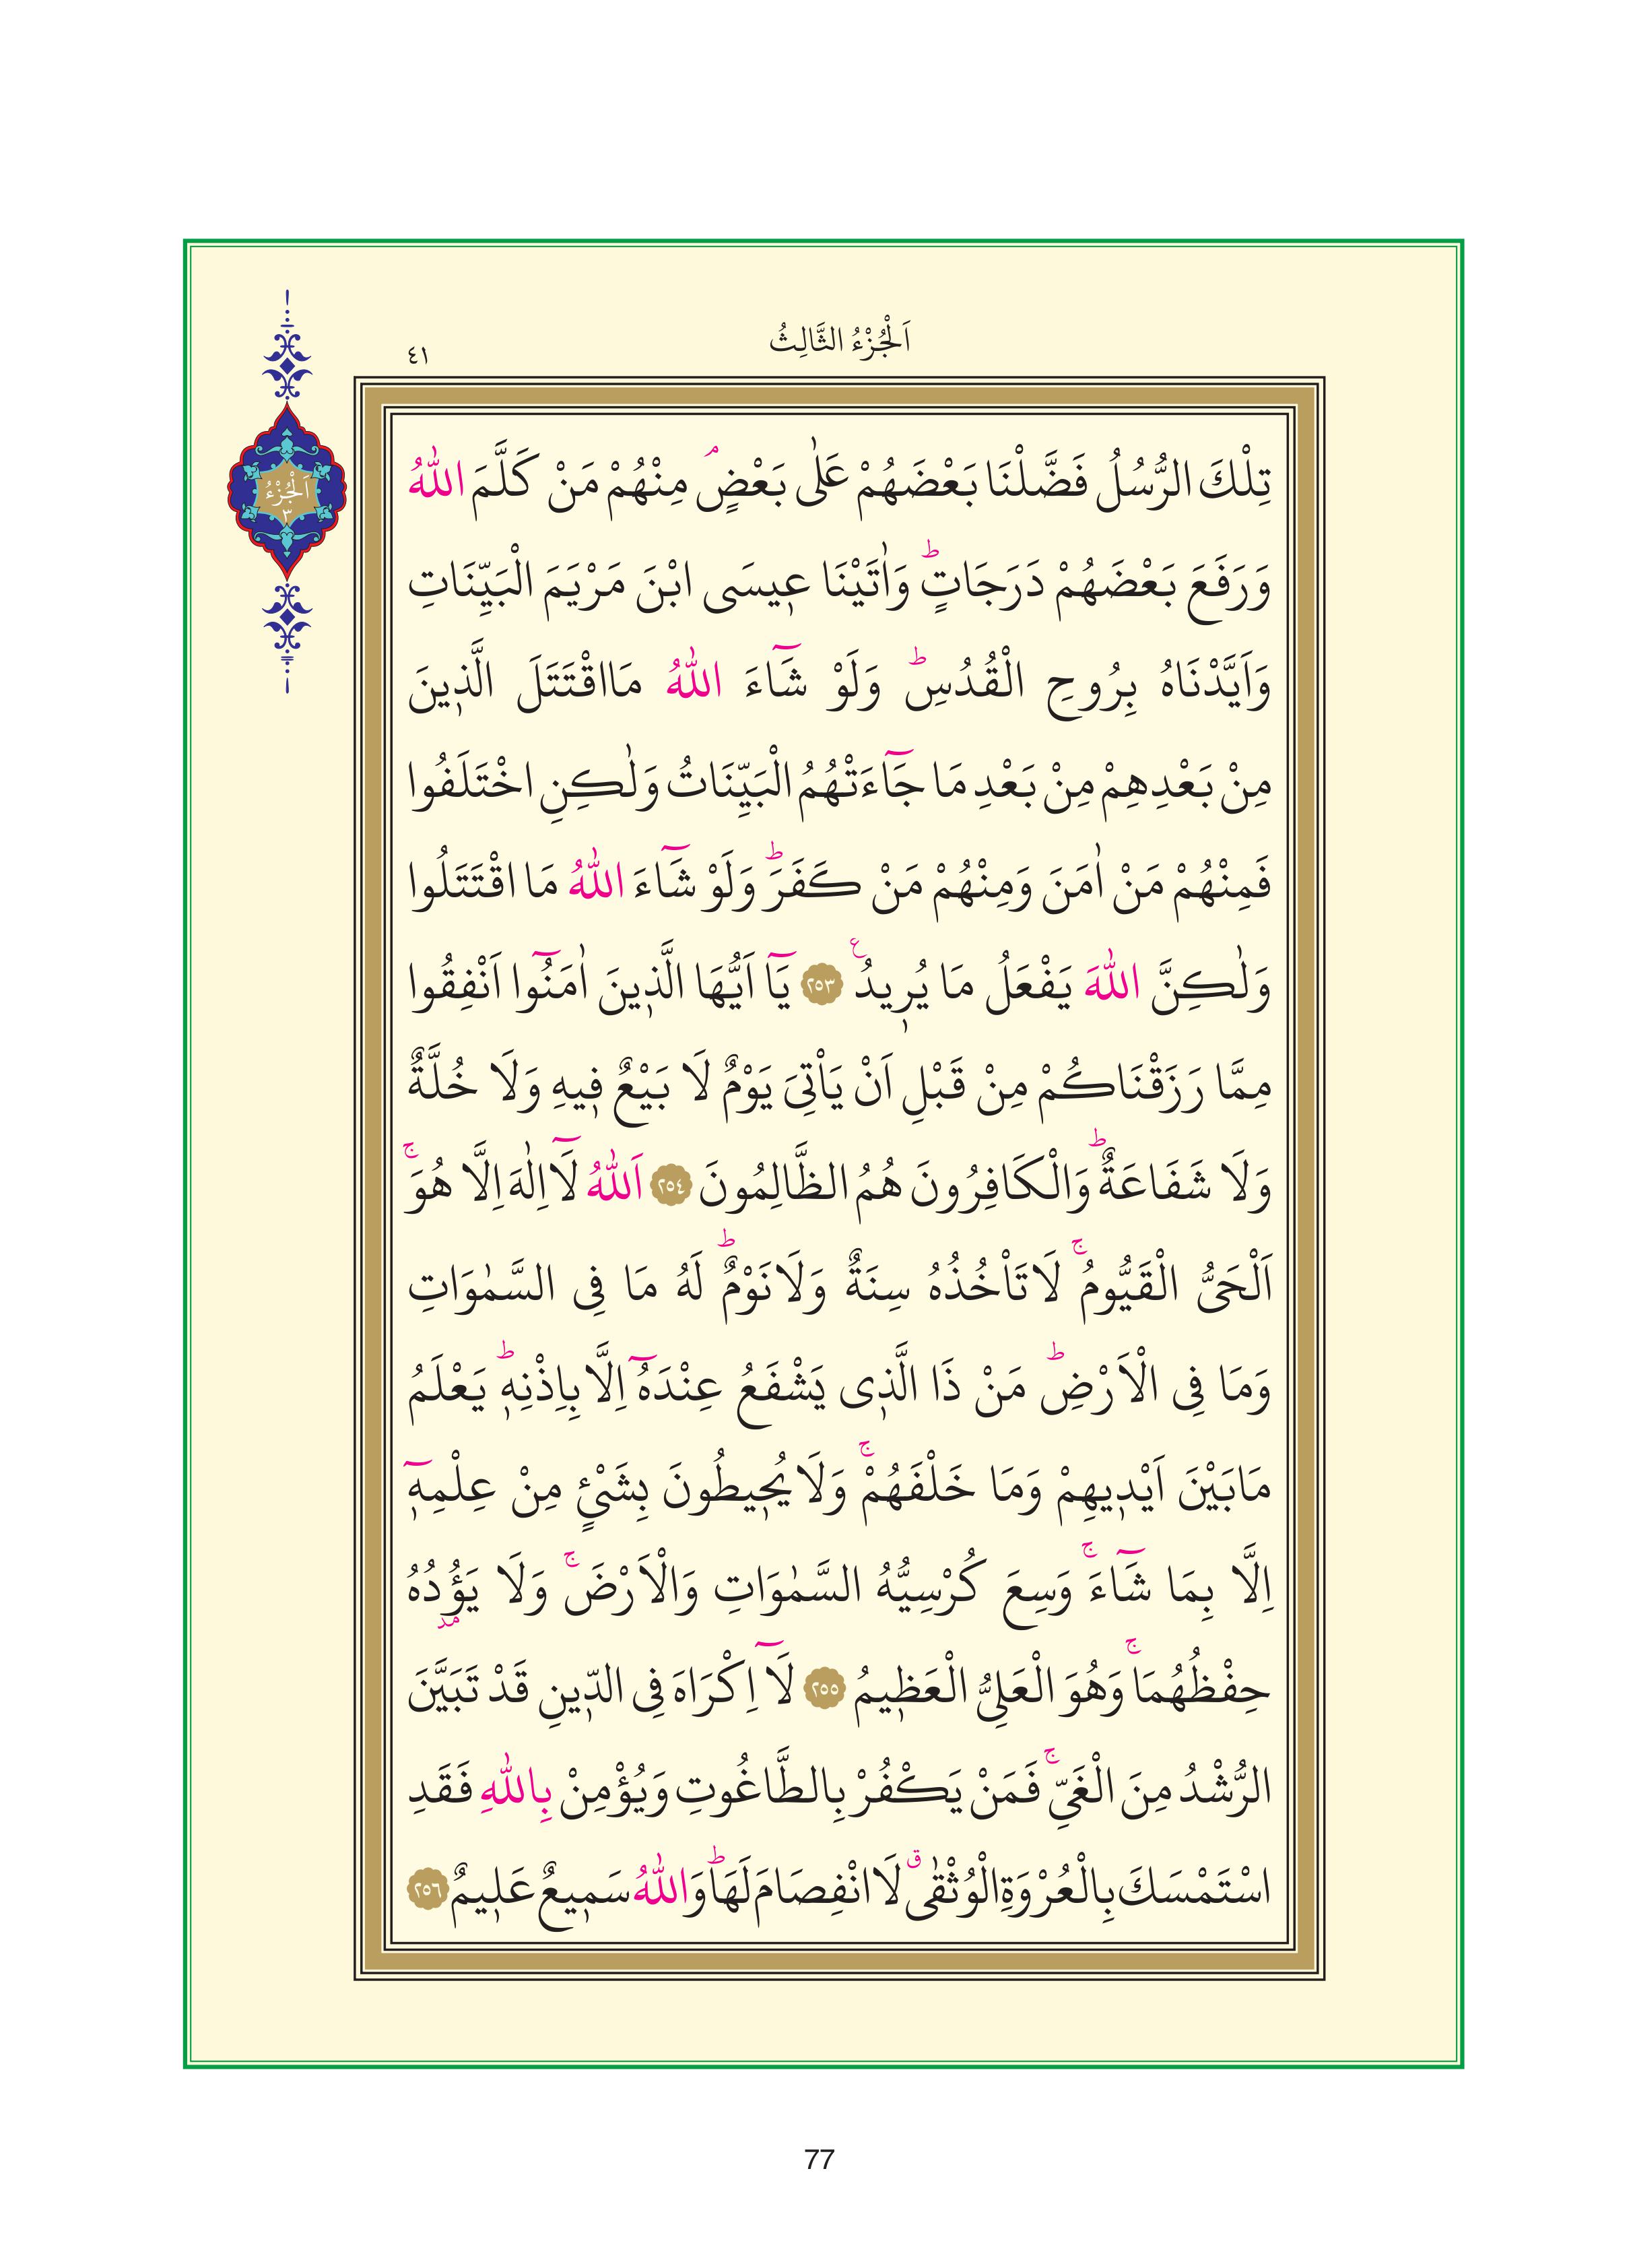 اَلْجُزْءُ الثَّالِثُ
٤١
اَلْجُزْءُ
٣
تِلْكَ الرُّسُلُ فَضَّلْنَا بَعْضَهُمْ عَلٰى بَعْضٍۢ مِنْهُمْ مَنْ كَلَّمَ اللّٰهُ
وَرَفَعَ بَعْضَهُمْ دَرَجَاتٍؕ وَاٰتَيْنَا عٖيسَى ابْنَ مَرْيَمَ الْبَيِّنَاتِ
وَاَيَّدْنَاهُ بِرُوحِ الْقُدُسِؕ وَلَوْ شَٓاءَ اللّٰهُ مَااقْتَتَلَ الَّذٖينَ
مِنْ بَعْدِهِمْ مِنْ بَعْدِ مَا جَٓاءَتْهُمُ الْبَيِّنَاتُ وَلٰكِنِ اخْتَلَفُوا
فَمِنْهُمْ مَنْ اٰمَنَ وَمِنْهُمْ مَنْ كَفَرَؕ وَلَوْ شَٓاءَ اللّٰهُ مَا اقْتَتَلُوا
وَلٰكِنَّ اللّٰهَ يَفْعَلُ مَا يُرٖيدُࣖ ﴿٢٥٣﴾ يَٓا اَيُّهَا الَّذٖينَ اٰمَنُٓوا اَنْفِقُوا
مِمَّا رَزَقْنَاكُمْ مِنْ قَبْلِ اَنْ يَاْتِىَ يَوْمٌ لَا بَيْعٌ فٖيهِ وَلَا خُلَّةٌ
وَلَا شَفَاعَةٌؕ وَالْكَافِرُونَ هُمُ الظَّالِمُونَ ﴿٢٥٤﴾ اَللّٰهُ لَٓا اِلٰهَ اِلَّا هُوَۚ
اَلْحَىُّ الْقَيُّومُۚ لَا تَاْخُذُهُ سِنَةٌ وَلَا نَوْمٌؕ لَهُ مَا فِى السَّمٰوَاتِ
وَمَا فِى الْاَرْضِؕ مَنْ ذَا الَّذٖى يَشْفَعُ عِنْدَهُٓ اِلَّا بِاِذْنِهٖؕ يَعْلَمُ
مَابَيْنَ اَيْدٖيهِمْ وَمَا خَلْفَهُمْۚ وَلَا يُحٖيطُونَ بِشَیْئٍ مِنْ عِلْمِهٖٓ
اِلَّا بِمَا شَٓاءَۚ وَسِعَ كُرْسِيُّهُ السَّمٰوَاتِ وَالْاَرْضَۚ وَلَا يَؤُدُهُ
حِفْظُهُمَاۚ وَهُوَ الْعَلِىُّ الْعَظٖيمُ ﴿٢٥٥﴾ لَٓا اِكْرَاهَ فِى الدّٖينِ قَدْ تَبَيَّنَ
الرُّشْدُ مِنَ الْغَىِّۚ فَمَنْ يَكْفُرْ بِالطَّاغُوتِ وَيُؤْمِنْ بِاللّٰهِ فَقَدِ
اسْتَمْسَكَ بِالْعُرْوَةِ الْوُثْقٰىࣗ لَا انْفِصَامَ لَهَاؕ وَاللّٰهُ سَمٖيعٌ عَلٖيمٌ ﴿٢٥٦﴾
77